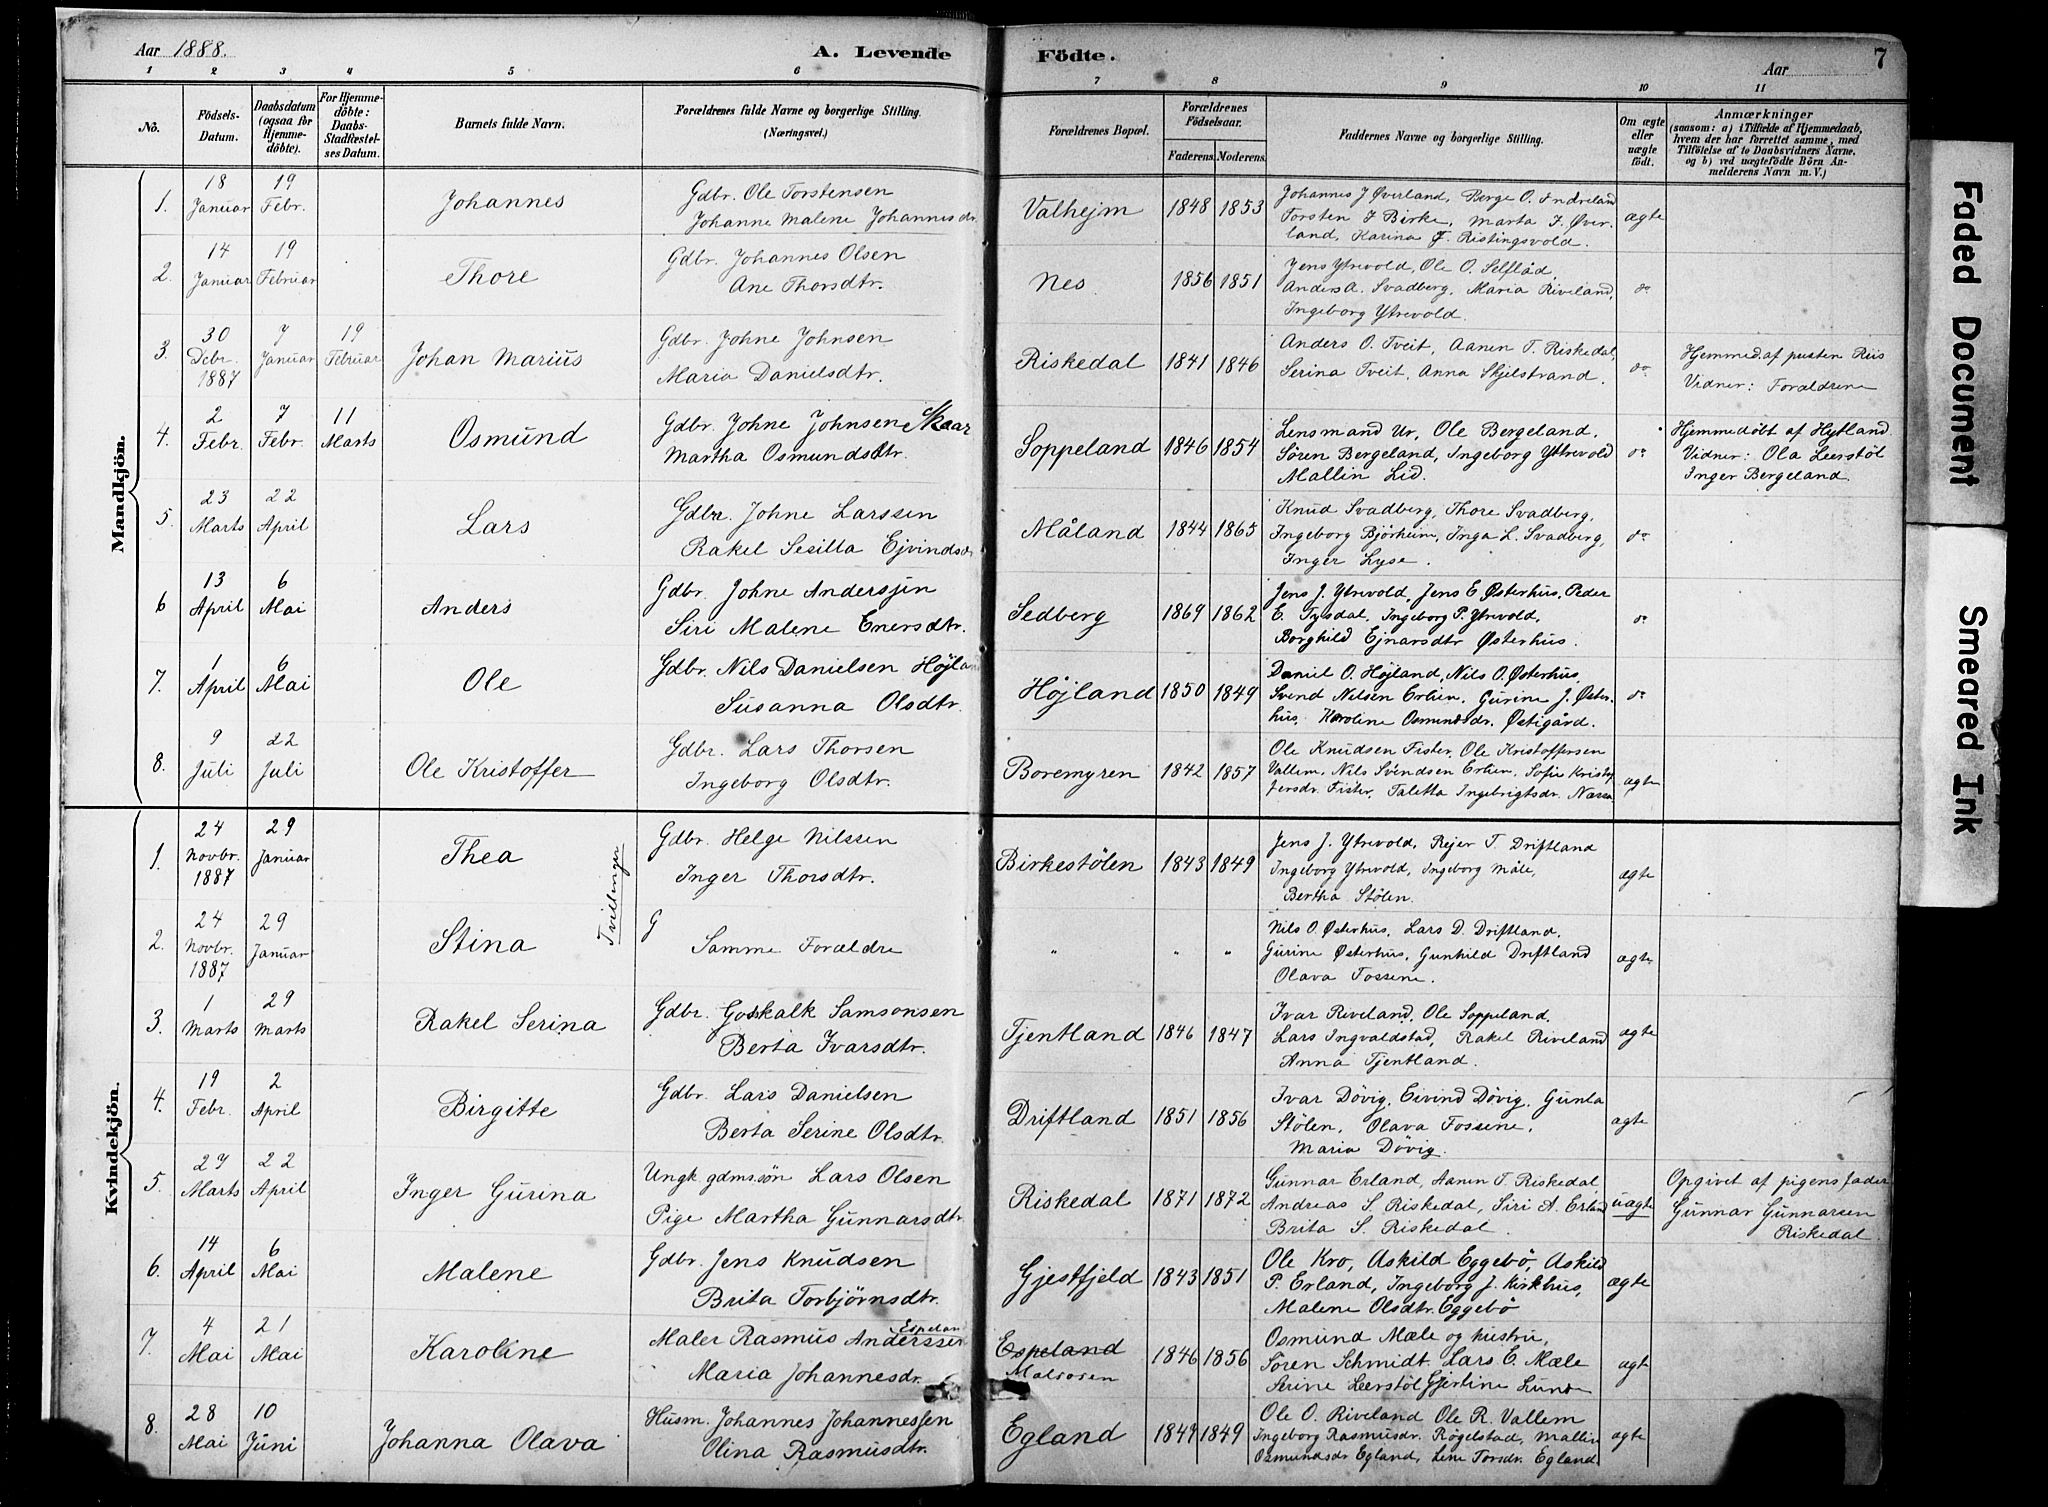 Aar 1888.
A. Levende Födte.
Aar
7
1 2 3 4 5 6 7 8 9 10 11
No.
Födsels-Datum.
Daabsdatum (ogsaa for Hjemme-döbte).
For Hjemme-döbte: Daabs-Stadfæstel-ses Datum.
Barnets fulde Navn.
Forældrenes fulde Navne og borgerlige Stilling. (Næringsvei.)
Forældrenes Bopæl.
Forældrenes Födselsaar.
Faderens. Moderens.
Faddernes Navne og borgerlige Stilling.
Om ægte eller uægte födt.
Anmærkninger
(saasom: a) i Tilfælde af Hjemmedaab, hvem der har forrettet samme, med Tilföielse af to Daabsvidners Navne, og b) ved uægtefödte Börn An-melderens Navn m. V.)
Mandkjön.
1. 18 Januar 19 Febr. Johannes Gdbr. Ole Torstensen
Johanne Malene Johannesdr. Valhejm 1848 1853 Johannes J Øverland, Berge O. Indreland
Torsten J Birke, Marta J. Øver-
land, Karina J. Ristingsvold. ægte
2. 14 Januar 19 Februar Thore Gdbr. Johannes Olsen
Ane Thorsdtr. Nes 1856 1851 Jens Ytrevold, Ole O. Selflåd,
Anders A. Svadberg, Maria Riveland,
Ingeborg Ytrevold. do
3. 30 Decbr. 1887 7 Januar 19 Februar Johan Marius Gdbr. Johne Johnsen
Maria Danielsdtr. Riskedal 1841 1846 Anders O. Tveit, Aanen T. Riskedal,
Serina Tveit, Anna Skjelstrand. do Hjemmed. af pusten Riis
Vidner: Forældrene
4. 2 Febr. 7 Febr. 11 Marts Osmund Gdbr. Johne Johnsen Skaar
Martha Osmundsdtr. Soppeland 1846 1854 Lensmand Ur, Ole Bergeland,
Sören Bergeland, Ingeborg Yttrevold
Mallin Lid. do Hjemmedöbt af Hytland
Vidner: Ola Leerstöl
Inger Bergeland.
5. 23 Marts 22 April Lars Gdbr. Johne Larssen
Rakel Sesilla Ejvindsdr Måland 1844 1865 Knud Svadberg, Thore Svadberg,
Ingeborg Bjórheim, Inga L. Svadberg,
Inger Lyse. do
6 13 April 6 Mai Anders Gdbr. Johne Anderssen
Siri Malene Enersdtr. Sedberg 1869 1862 Jens J. Ytrevold, Jens E Østerhus, Peder
E. Tysdal, Ingeborg P. Ytrevold,
Borghild Ejnarsdtr Østerhus. do
7. 1 April 6 Mai Ole Gdbr. Nils Danielsen Höjland
Susanna Olsdtr. Höjland 1850 1849 Daniel O. Höjland, Nils O. Østerhus,
Svend Nilsen Erlien, Gurine J. Øster-
hus, Karoline Osmundsdr. Østigård. do
8. 9 Juli 22 Juli Ole Kristoffer Gdbr. Lars Thorsen
Ingeborg Olsdtr. Boremyren 1842 1857 Ole Knudsen Fister, Ole Kristoffersen
Vallem, Nils Svendsen Erlien, Sofie Kristof
fersdr. Fister, Taletta Ingebrigtsdr. Nessa ægte
Kvindekjön.
1. 24 Novbr. 1887 29 Januar Thea Tvillinger Gdbr. Helge Nilssen
Inger Thorsdtr. Birkestölen 1843 1849 Jens J. Ytrevold, Rejer T. Driftland
Ingeborg Ytrevold, Ingeborg Måle,
Bertha Stölen. ægte
2. 24 Novbr. 1887 29 Januar Stina G Samme Forældre " " " Nils O. Østerhus, Lars D. Driftland,
Gurine Østerhus, Gunhild Driftland
Olava Fossene. ægte
3. 1 Marts 29 Marts Rakel Serina Gdbr. Goskalk Samsonsen
Berta Ivarsdtr. Tjentland 1846 1847 Ivar Riveland, Ole Soppeland,
Lars Ingvaldstad, Rakel Riveland
Anna Tjentland. ægte
4. 19 Febr. 2 April Birgitte Gdbr. Lars Danielsen
Berta Serine Olsdtr. Driftland 1851 1856 Ivar Dövig, Eivind Dövig, Gunla
Stölen, Olava Fossene,
Maria Dövig. ægte
5. 27 Marts 22 April Inger Gurina Ungk. gdms.sön Lars Olsen
Pige Martha Gunnarsdtr. Riskedal 1871 1872 Gunnar Erland, Aanen T. Riskedal,
Andreas S. Riskedal, Siri A. Erland
Brita S. Riskedal. uægte Opgivet af pigens fader
Gunnar Gunnarsen
Riskedal.
6. 14 April 6 Mai Malene Gdbr. Jens Knudsen
Brita Torbjörnsdtr. Gjestfjeld 1843 1851 Ole Kro, Askild Eggebö, Askild
P. Erland, Ingeborg J. Kirkhus,
Malene Olsdtr. Eggebö ægte
7. 4 Mai 21 Mai Karoline Maler Rasmus Anderssen Espeland
Maria Johannesdr. Espeland
1846 1856 Osmund Mæle og hustru,
Sören Schmidt, Lars E. Mæle
Serine Leerstöl, Gjertine Lunde ægte
8. 28 Mai 10 Juni Johanna Olava Husm. Johannes Johannessen
Olina Rasmusdtr. Egland 1849 1849 Ole O. Riveland Ole R. Vallem
Ingeborg Rasmusdr. Rögelstad, Mallin
Osmundsdr Egland, Lene Torsdr. Egland. ægte
Faded Document
Smeared Ink